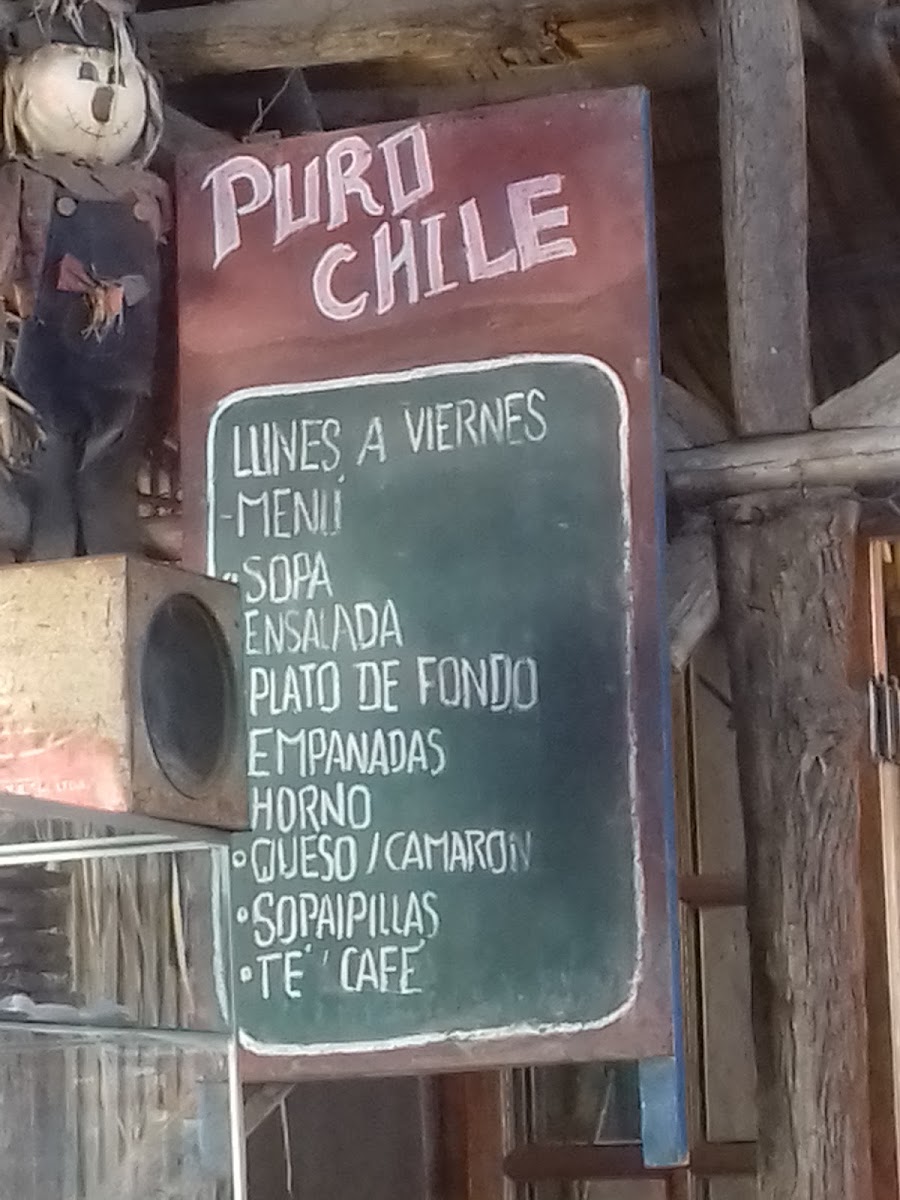 PURO
CHILE
LUNES A VIERNES
-MENÚ
•SOPA
ENSALADA
PLATO DE FONDO
EMPANADAS
HORNO
•QUESO/CAMARON
•SOPAIPILLAS
•TÉ ' CAFÉ